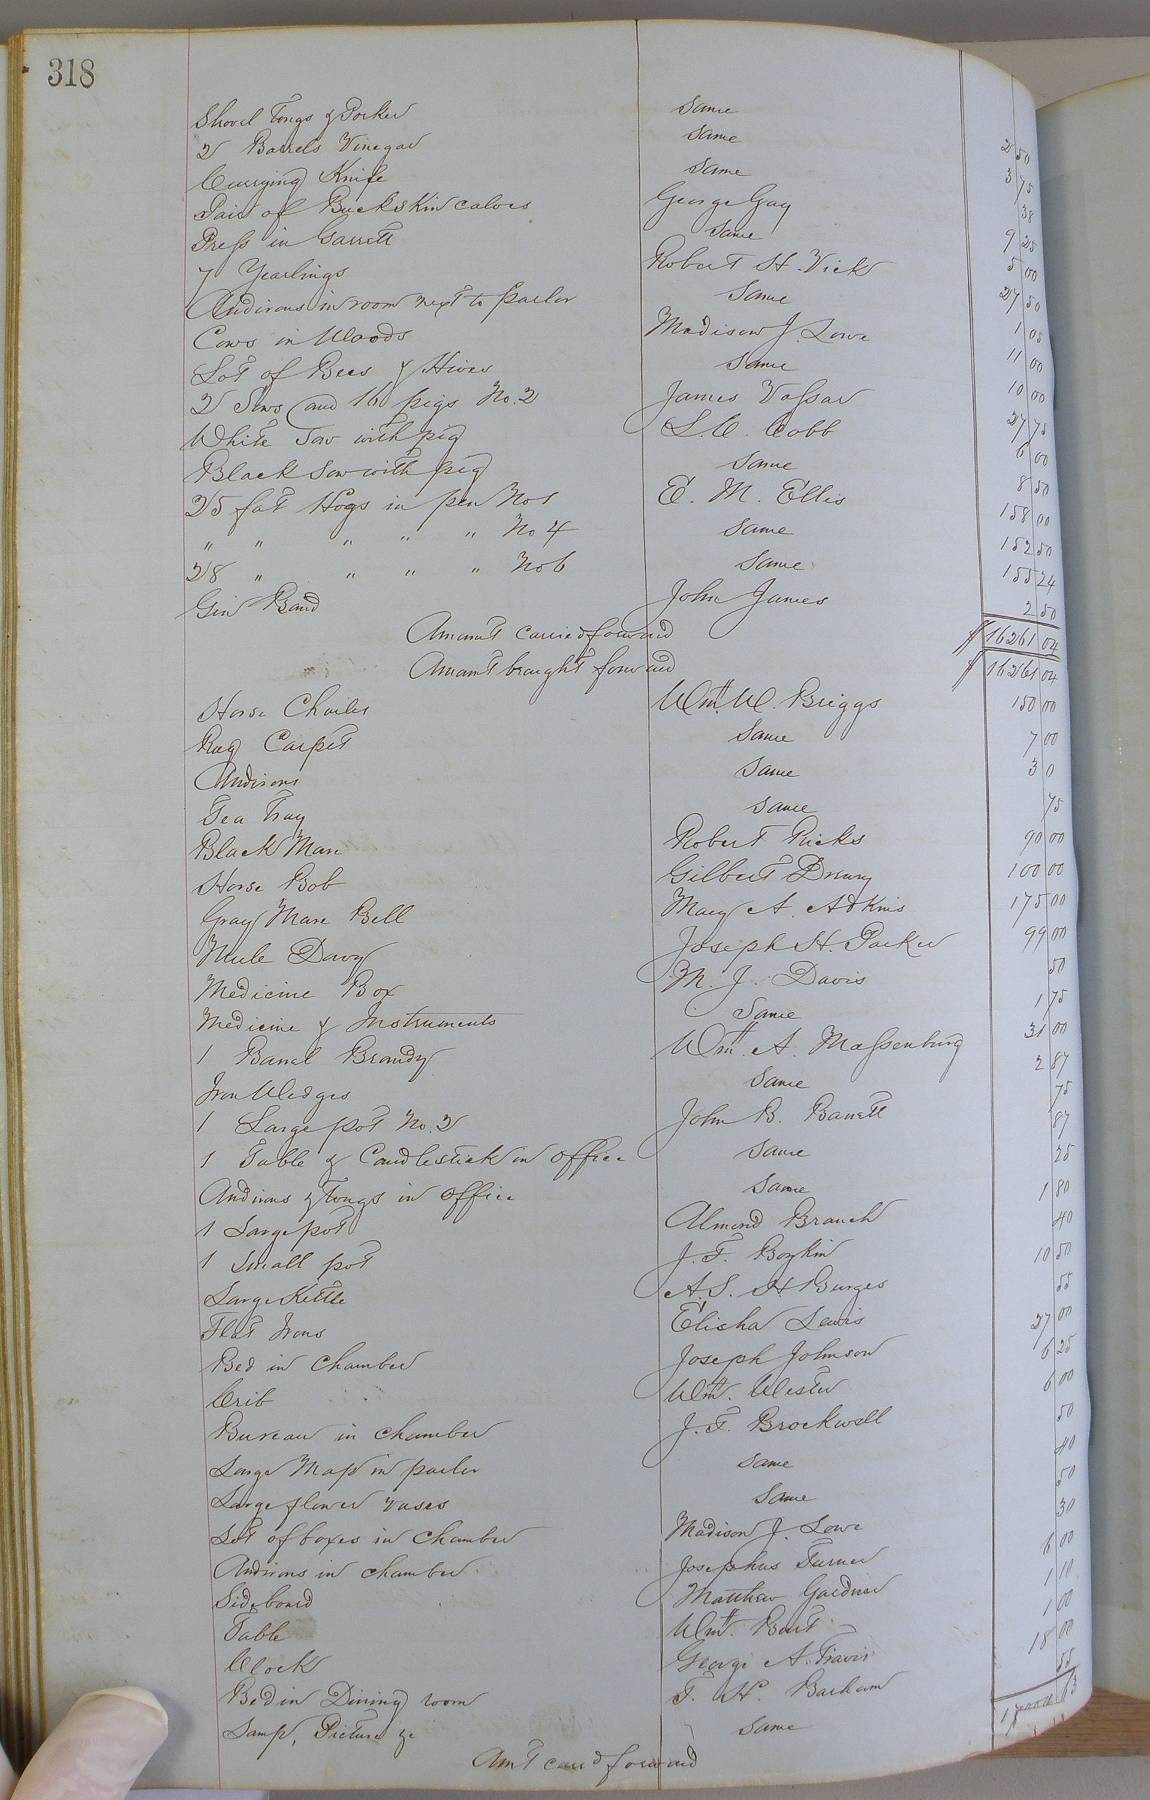 318
Shovel Tongs & Poker Same 2 50
2 Barrels Vinegar Same 3 75
Currying Knife Same 38
Pair of Buckskin calves George Gay 9 25
Press in Garrett Same 5 00
7 Yearlings Robert H. Vick 27 50
Andirons in room next to parlor Same 1 05
Cows in Woods Madison J. Lowe 11 00
Lot of Bees & Hives Same 10 00
2 Sows and 16 pigs No. 2 James Vassar 27 75
White Sow with pig L. C. Cobb 6 00
Black Sow with pig Same 8 50
25 fat Hogs in pen No 1 E. M. Ellis 158 00
" " " " " No 4 Same 152 50
28 " " " " No 6 Same 155 24
Gin Band John James 2 50
Amount carried forward $16261 04
Amount brought forward $16261 04
Horse Charles Wm. W. Briggs 150 00
Rug Carpet Same 7 00
Andirons Same 30
Tea Tray Same 75
Black Mare Robert Ricks 90 00
Horse Bob Gilbert Drewry 100 00
Gray Mare Bell Mary A. Adkins 175 00
Mule Davy Joseph H. Parker 99 00
Medicine Box M. J. Davis 50
Medicine & Instruments Same 1 75
1 Barrel Brandy Wm. A. Massenburg 31 00
Iron Wedges Same 2 87
1 Large pot No. 2 John B. Barrett 75
1 Table & Candlestick in office Same 87
Andirons & Tongs in office Same 25
1 Large pot Almond Branch 1 80
1 Small pot J. F. Boykin 40
Large Kettle A. S. H Burges 10 50
Flat Irons Elisha Lewis 55
Bed in chamber Joseph Johnson 27 00
Crib Wm. Wester 6 25
Bureau in chamber J. F. Brockwell 6 00
Large Map in parlor Same 50
Large flower vases Same 40
Lot of boxes in chamber Madison J. Lowe 50
Andirons in chamber Josephus Turner 30
Sideboard Matthew Gardner 6 00
Table Wm. Bort 1 10
Clock George A. Travis 1 00
Bed in Dining room T. H. Barham 18 00
Lamp, Picture &c Same 55
Amt card forward